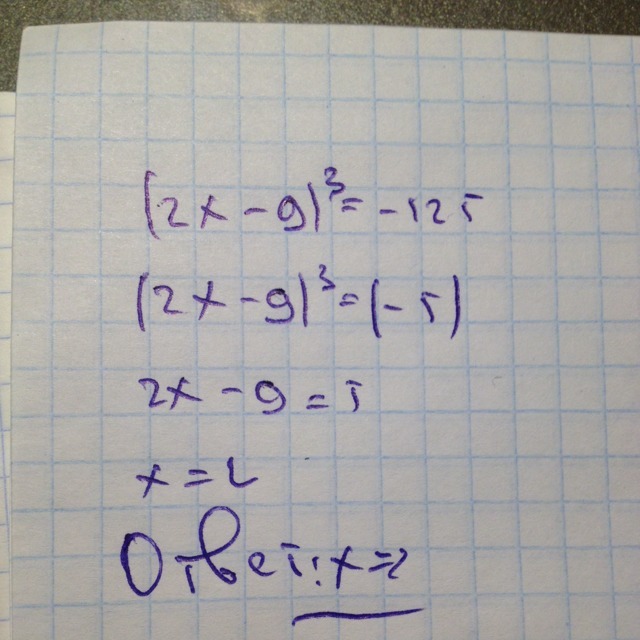 (2x - 9)³ = - 125
(2x - 9)³ = (- 5)
2x - 9 = 5
x = 2
Ответ: x = 2